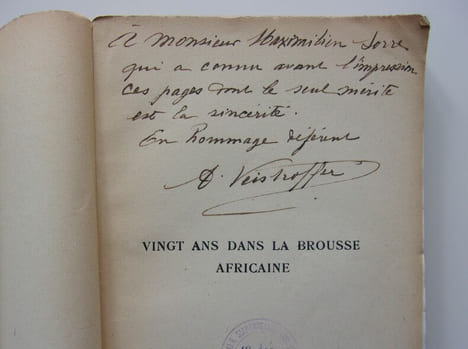 À Monsieur Maximilien Sorre
qui a connu avant l'impression
ces pages dont le seul mérite
est la sincérité.
En hommage déférent
A. Veistroffer
VINGT ANS DANS LA BROUSSE
AFRICAINE